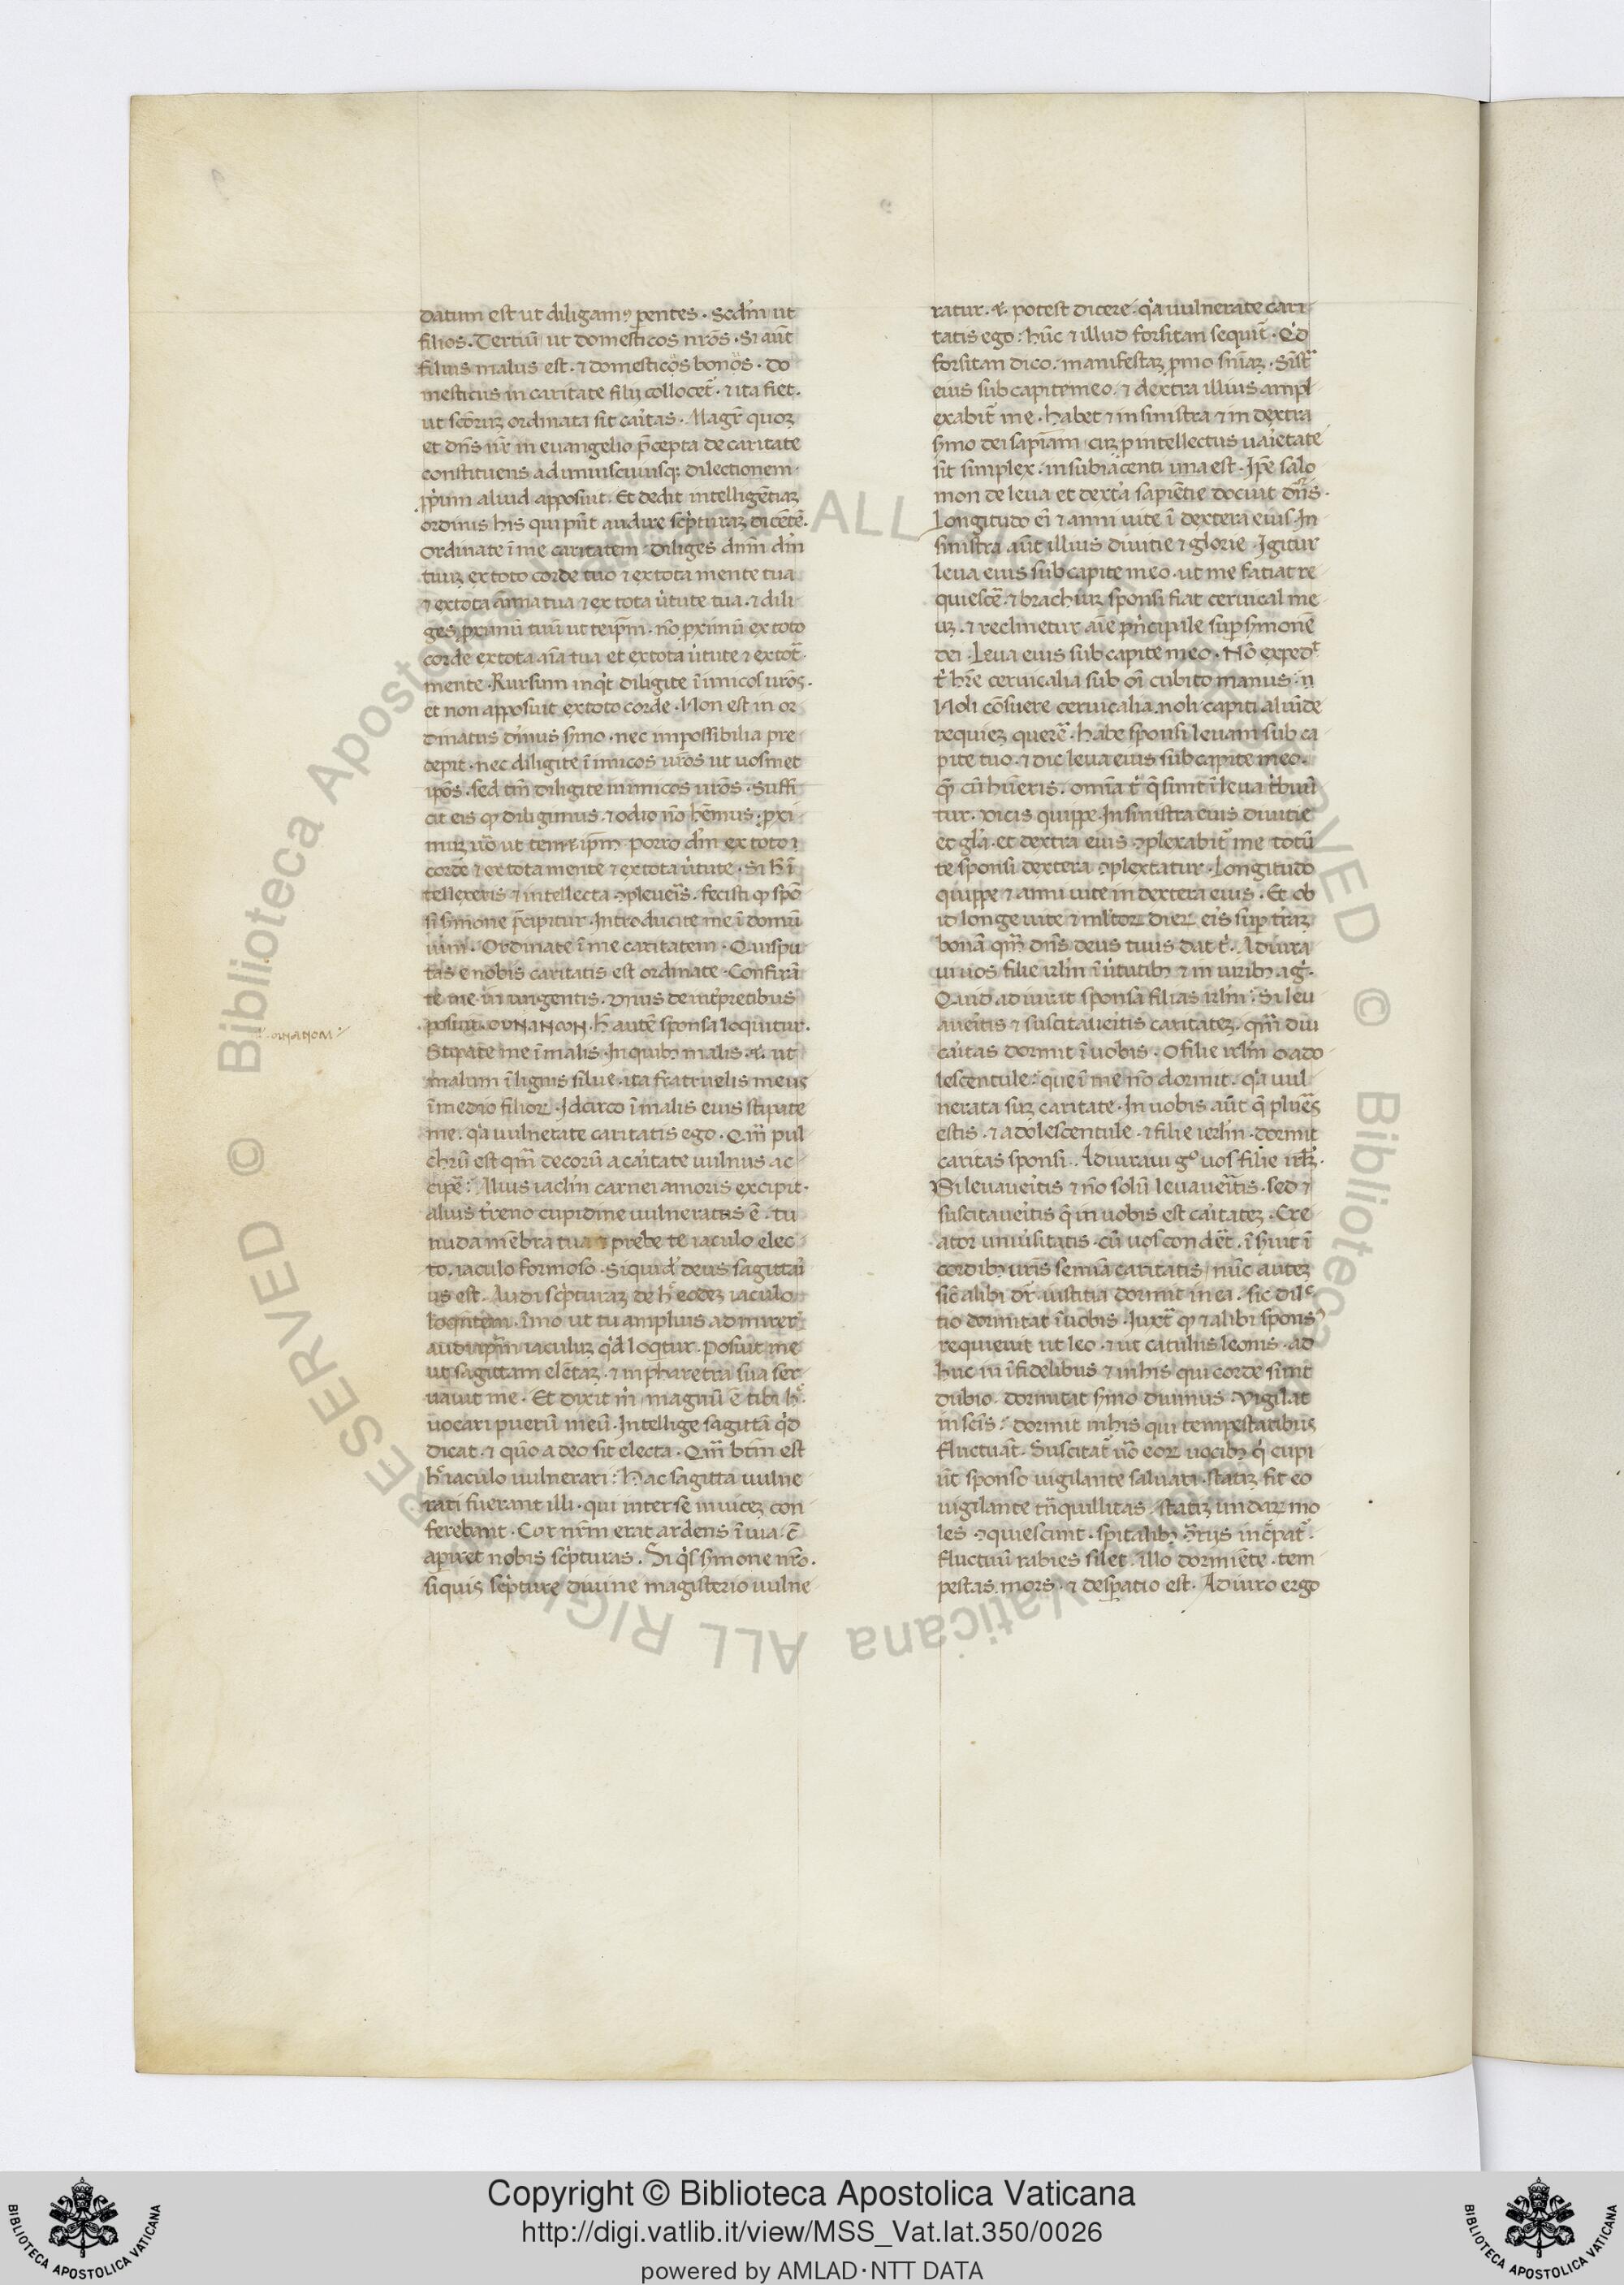 datum est ut diligamꝰ parentes. Scd̄m ut
filios. Tertiū ut domesticos nr̄os. Si aūt
filius malus est. et domesticos bonos. do
mesticus in caritate filij collocet᷑. et ita fiet.
ut scōruꝫ ordinata sit caritas. Magr̄ quoꝫ
et dn̄s nr̄ in evangelio p̄cepta de caritate
constituens ad uniuscuiusqꝫ dilectionem
ꝓprium aliud apposuit. Et dedit intelligētiaꝫ
ordinis his qui pn̄t audire scripturaꝫ dicētē.
Ordinate ī me caritatem. diliges dnm̄ dm̄
tuuꝫ ex toto corde tuo et ex tota mente tua
et ex tota anīma tua et ex tota virtute tua. et dili
ges proximū tuū ut teip̄m. nō proximū ex toto
corde ex tota aīa tua et ex tota virtute et ex tot᷑
mente. Rursum inqt diligite īimicos vr̄os.
et non apposuit ex toto corde. Non est in or
dinatus divinus sermo. nec impossibilia pre
cepit. nec diligite īimicos vr̄os ut vosmet
ip̄os. sed tm̄ diligite inimicos vr̄os. Suffi
cit eis quod diligimus. et odio nō hēmus. proxi
muꝫ vō ut temetip̄m. porro dm̄ ex toto
corde et ex tota mente et ex tota virtute. Si h̄ ī
tellexeris et intellecta ꝯpleveris. fecisti quod spō
si sermone p̄cipitur. Introducite me ī domū
vini. Ordinate ī me caritatem. Quis pu
tas e nobis caritatis est ordinate. Confirā
te me in ungentis. Unus de interpretibus
posuit. OYNANCON. h̄ autē sponsa loquitur.
Stipate me ī malis. In quibꝫ malis. ut
malum ī lignis silve. ita fratruelis meus
ī medio filioꝝ. Idcirco ī malis eius stipate
me. quia vulnerate caritatis ego. Qm̄ pul
chrū est qm̄ decorū a caritate vulnus ac
cipe᷑. Alius iaclm̄ carnei amoris excipit.
alius treno cupidine vulneratus ē. tu
nuda mēbra tua et prebe te iaculo elec
to. iaculo formoso. Siquid deus sagittari
us est. Audi scripturaꝫ de h̄ eodeꝫ iaculo
loquntem. īmo ut tu amplius admirer᷑
audi ip̄m iaculuꝫ qd loqtur. Posuit me
ut sagittam elētaꝫ. et in pharetra sua ser
vavit me. Et dixit m. magnū ē tibi h̄
vocari puerū meū. Intellige sagittā qd
dicat. et quō a deo sit electa. Qm̄ btm̄ est
h̄ iaculo vulnerari: hac sagitta vulne
rati fuerant illi. qui inter se invicez con
ferebant. Cor nrm̄ erat ardens ī via. c̄
apiret nobis scripturas. Si qs sermone nr̄o.
siquis scripture divine magisterio vulne
OYNANOM
ratur. et potest dicere. quia vulnerate cari
tatis ego: hūc et illud forsitan sequit᷑. Qd
forsitan dico. manifestaꝫ promo sn̄iaꝫ. Sīstra
eius sub capite meo. et dextra illius ampl
exabit᷑ me. habet et in sinistra et in dextra
sermo dei sapiam. cuꝫ pro intellectus varietate
sit simplex. in subiacenti una est. Ip̄e salo
mon de leva et dextra sapientie docuit dn̄s.
Longitudo ei et anni vite ī dextera eius. In
sinistra aūt illius divitie et glorie. Igitur
leva eius sub capite meo. ut me fatiat re
quiesce᷑. et brachiuꝫ sponsi fiat cervical me
uꝫ. et reclinetur aīe principale super sermonē
dei. Leva eius sub capite meo. Nō expedt
t hr̄e cervicalia sub oī cubito manus. n
Noli cōsuere cervicalia. noli capiti aliūde
requieꝫ quere᷑. habe sponsi levam sub ca
pite tuo. et dic leva eius sub capite meo.
quod cū hueris. omīa t q̄ sunt ī leva tribuū
tur. Dicis quippe. In sinistra eius divitie
et gla. et dextra eius ꝯplexabit᷑ me totū
te sponsi dextera ꝯplextatur. Longitudo
quippe et anni vite in dextera eius. Et ob
id longe vite et mltoꝝ dieꝝ eis super terraꝫ
bonā qm̄ dn̄s deus tuus dat t. Adiura
vi vos filie irlm̄ ī virtutibꝫ et in viribꝫ agi.
Quid adiurat sponsa filias irlm̄: Si leva
averitis et suscitaveritis caritateꝫ. qm̄ diu
caritas dormit ī vobis. O filie irlm̄ o ado
lescentule: que ī me nō dormit. quia vul
nerata suꝫ caritate. In vobis aūt q̄ plures
estis. et adolescentule. et filie ierlm̄. dormit
caritas sponsi. Adiuravi gº vos filie irlꝫ.
Si levaveritis et nō solū levaveritis. sed et
suscitaveritis q̄ in vobis est caritateꝫ. Cre
ator universitatis. cū vos condet᷑. īseruit ī
cordibꝫ vr̄is semina caritatis. nūc auteꝫ
sic̄ alibi dr̄. iustitia dormit in ea. sic dilc
tio dormitat ī vobis. Iuxta quod et alibi sponsꝰ
requievit ut leo. et ut catulus leonis. ad
huc in īfidelibus et in his qui corde sunt
dubio. dormitat sermo divinus. Vigilat
in scīs. dormit in his qui tempestatibus
fluctuāt. Suscitat᷑ vō eoꝝ vocibꝫ q cupi
ūt sponso vigilante salvari. statiꝫ fit eo
vigilante tn̄quillitas. statiꝫ undaꝝ mo
les ꝯquiescunt. spitalibꝫ ꝯtrijs incpat᷑.
fluctuū rabies silet. illo dormiēte. tem
pestas. mors. et desperatio est. Adiuro ergo
Copyright © Biblioteca Apostolica Vaticana
http://digi.vatlib.it/view/MSS_Vat.lat.350/0026
powered by AMLAD·NTT DATA